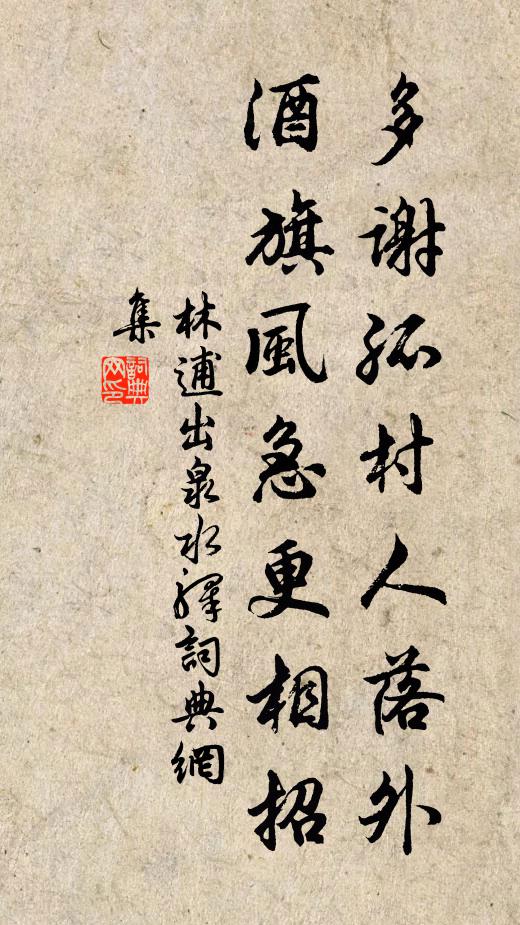 多謝孤村人落外
酒旗風急更相招
林逋出泉水驛詞典網
集
詞典
网印